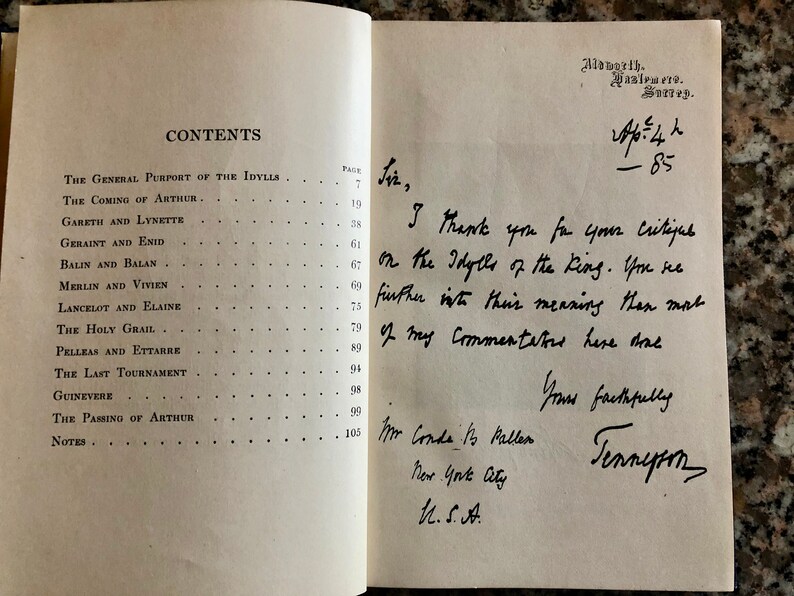 CONTENTS
PAGE
The General Purport of the Idylls . . . . 7
The Coming of Arthur . . . . . . . . . 19
Gareth and Lynette . . . . . . . . . . 38
Geraint and Enid . . . . . . . . . . 61
Balin and Balan . . . . . . . . . . . 67
Merlin and Vivien . . . . . . . . . . 69
Lancelot and Elaine . . . . . . . . . 75
The Holy Grail . . . . . . . . . . . 79
Pelleas and Ettarre . . . . . . . . . 89
The Last Tournament . . . . . . . . . 94
Guinevere . . . . . . . . . . . . . 98
The Passing of Arthur . . . . . . . . 99
Notes . . . . . . . . . . . . . . . 105
Aldworth,
Haslemere,
Surrey.
Apl. 4th
— 85
Sir,
I thank you for your critique
on the Idylls of the King. You see
further into their meaning than most
of my Commentators have done
Yours faithfully
Tennyson
Mr Condé B Pallen
New York City
U. S. A.